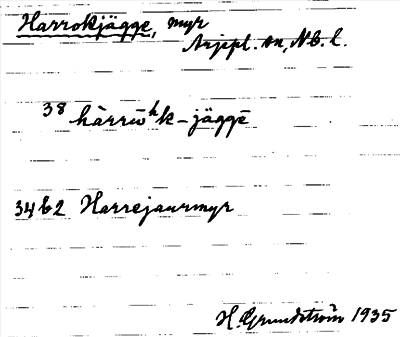 Harrokjägge, myr
Arjepl. sn, Nb. l.
38 hàrrūʰk-jäggē
34 b2 Harrejaurmyr
H. Grundström 1935